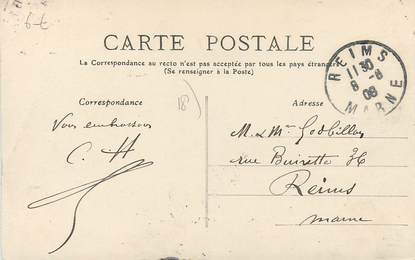 CARTE POSTALE
La Correspondance au recto n'est pas acceptée par tous les pays étrangers
(Se renseigner à la Poste)
Correspondance
Adresse
REIMS
11 30
8 - 8
09
MARNE
18
Vous embrassons
C. H
M. & Mme Godbillon
rue Buirette 36
Reims
Marne